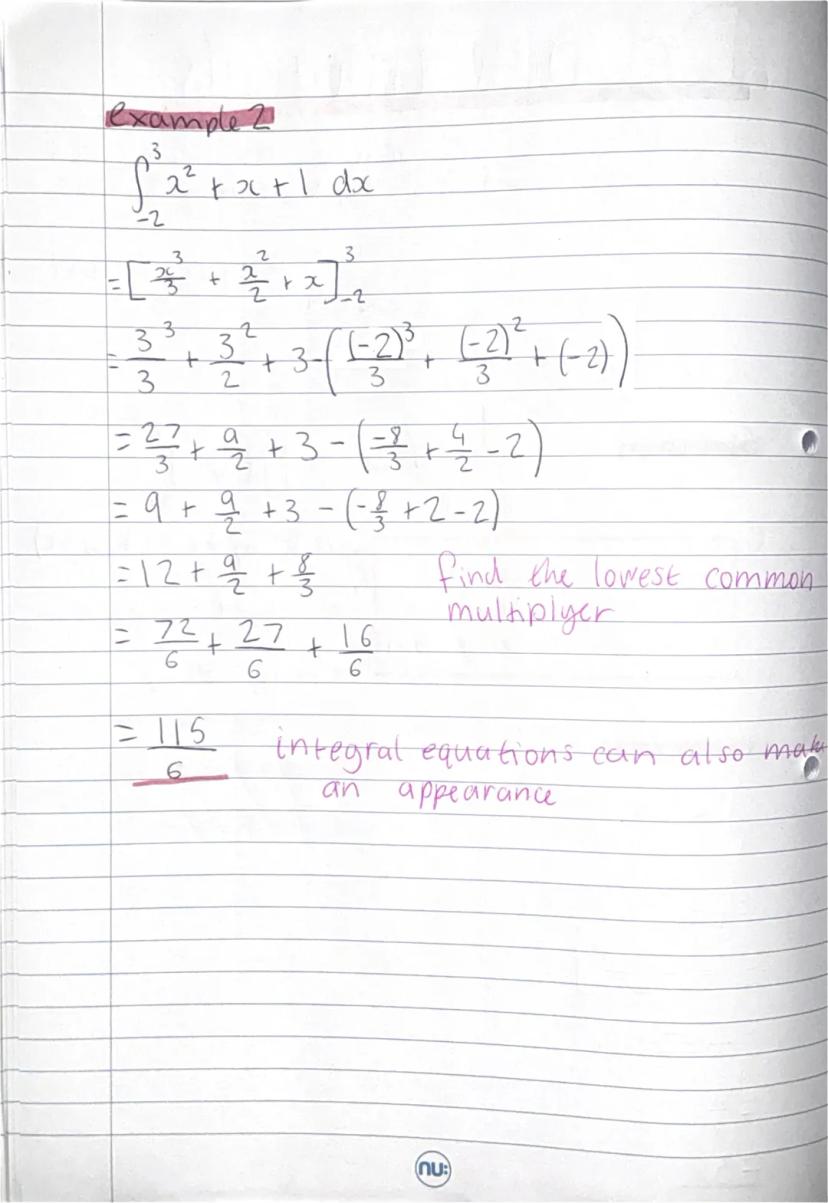 example 2
∫₋₂³ x² + x + 1 dx
= [x³/3 + x²/2 + x]₋₂³
= 3³/3 + 3²/2 + 3 - ((-2)³/3 + (-2)²/3 + (-2))
= 27/3 + 9/2 + 3 - (-8/3 + 4/2 - 2)
= 9 + 9/2 + 3 - (-8/3 + 2 - 2)
= 12 + 9/2 + 8/3 find the lowest common
multiplyer
= 72/6 + 27/6 + 16/6
= 115/6 integral equations can also make
an appearance
nu: